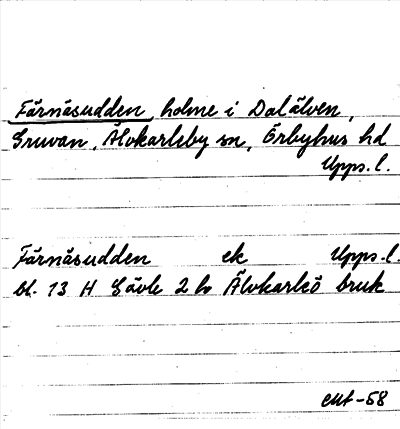 Färnäsudden, holme i Dalälven,
Gruvan, Älvkarleby sn, Örbyhus hd
Upps.l.
Färnäsudden ek Upps.l.
bl. 13 H Gävle 2 b Älvkarleö bruk
EMT-58